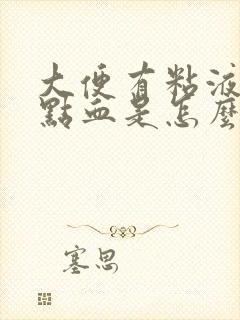 大便有粘液
點血是怎麼
塞思